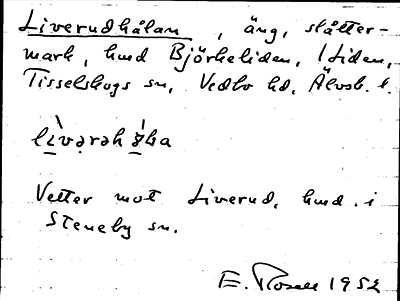 Liverudhålan, äng, slåtter-
mark, hmd Björkeliden, Liden,
Tisselskogs sn, Vedbo hd, Älvsb. l.
Vetter mot Liverud, hmd i
Steneby sn.
E. Rosell 1952